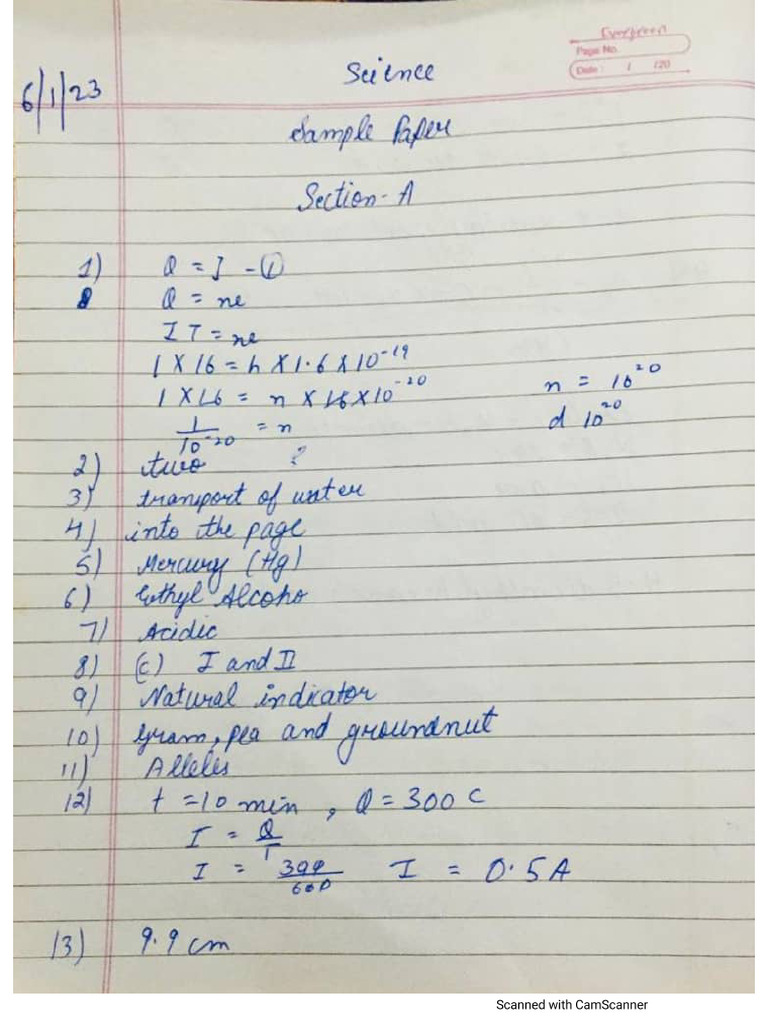 Evergreen
Page No.
Date: / /20
6/1/23
Science
Sample Paper
Section-A
1) Q = I -①
Q = ne
IT = ne
1 X 16 = h X 1.6 X 10⁻¹⁹
1 X 16 = n X 16 X 10⁻²⁰ n = 10²⁰
1/10⁻²⁰ = n d 10²⁰
2) two ?
3) transport of water
4) into the page
5) Mercury (Hg)
6) Ethyl Alcoho
7) Acidic
8) (c) I and II
9) Natural indicator
10) Gram, pea and groundnut
11) Alleles
12) t = 10 min, Q = 300 C
I = Q/T
I = 300/600 I = 0.5A
13) 9.9 cm
Scanned with CamScanner